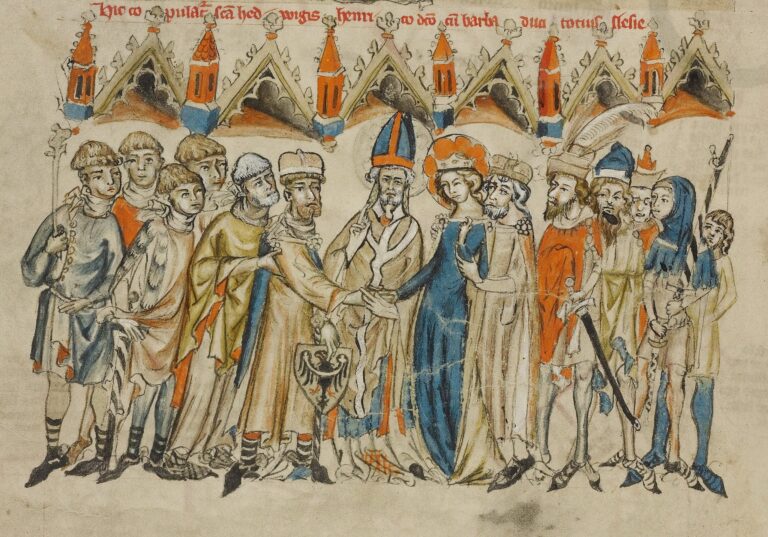 Hic copulat᷑ sc̃a hedwigis henrico dc̃o cũ barba duci totius slesie